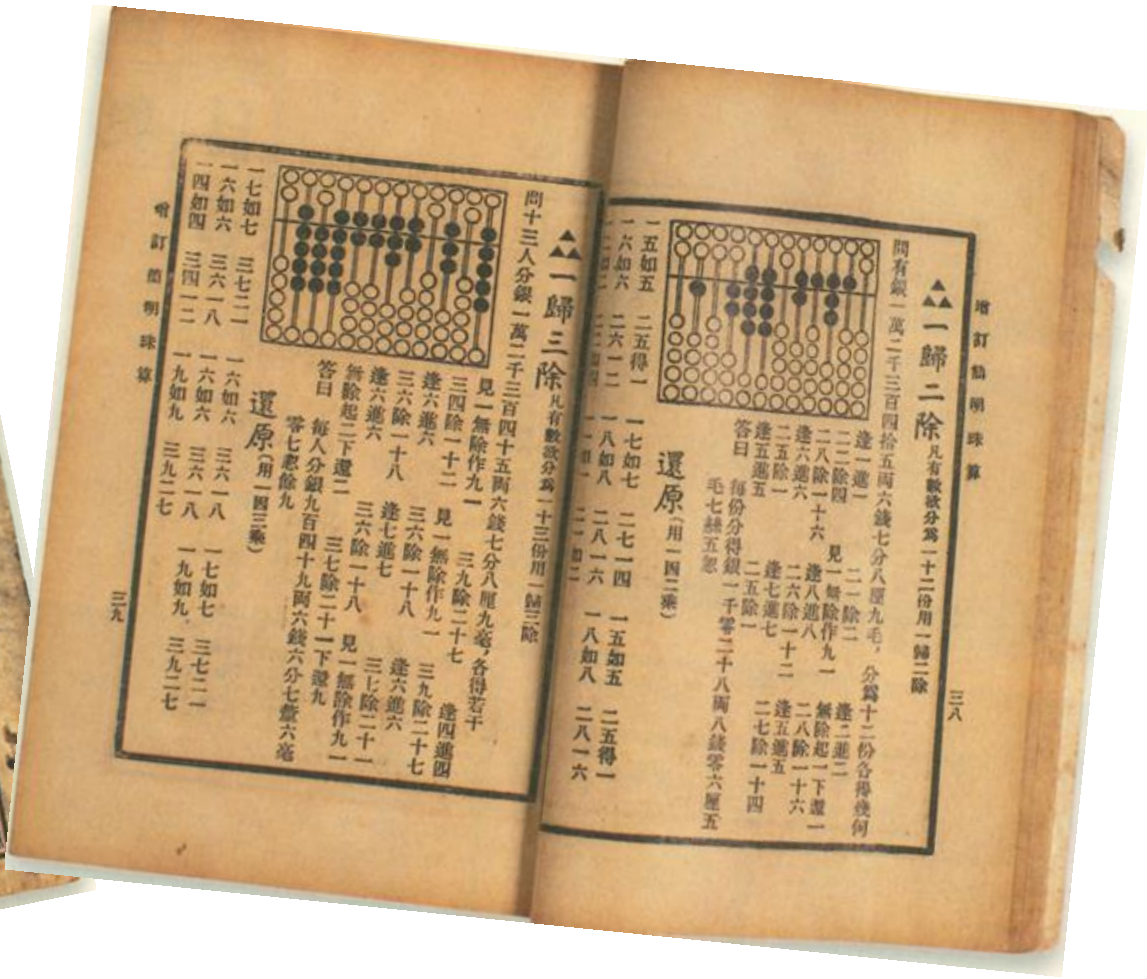 增訂簡明珠算
三八
一歸二除 凡有數欲分爲一十二份用一歸二除
問有銀一萬二千三百四拾五両六錢七分八厘九毛，分爲十二份各得幾何
逢一進一 二一除二 逢二進二
二二除四 見一無除作九一 無除起一下還一
二八除一十六 逢八進八 二八除一十六
逢六進六 二六除一十二 逢五進五
二五除一 逢七進七 二七除一十四
逢五進五 二五除一
答曰 每份分得銀一千零二十八両八錢零六厘五
毛七絲五忽
還原（用一四二乘）
一五如五 二五得一 一七如七 二七一四 一五如五 二五得一
一六如六 二六一二 一八如八 二八一六 一八如八 二八一六
一歸三除 凡有數欲分爲一十三份用一歸三除
問十三人分銀一萬二千三百四十五両六錢七分八厘九毫，各得若干
見一無除作九一 三九除二十七 逢四進四
三四除一十二 見一無除作九一 三九除二十七
逢六進六 三六除一十八 逢六進六
三六除一十八 逢七進七 三七除二十一
逢六進六 三六除一十八 見一無除作九一
無除起二下還二 三七除二十一下還九
答曰 每人分銀九百四十九両六錢六分七釐六毫
零七忽餘九
還原（用一四三乘）
一七如七 三七二一 一六如六 三六一八 一七如七 三七二一
一六如六 三六一八 一六如六 三六一八 一九如九 三九二七
一四如四 三四一二 一九如九 三九二七
增訂簡明珠算
三九